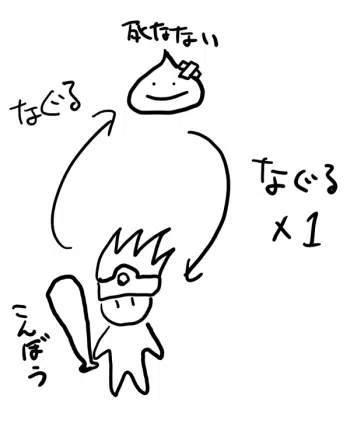 死なない
なぐる
なぐる
×1
こんぼう